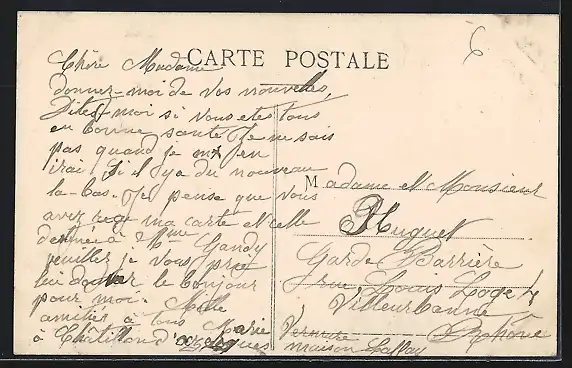 CARTE POSTALE
Chère Madame
donnez-moi de vos nouvelles,
Dites-moi si vous etes tous
en bonne santé Je ne sais
pas quand je m'en
irai Si il y a du nouveau
la-bas. Je pense que vous
avez reçu ma carte et celle
destinée à Mme Gandy
veuillez je vous prie
lui donner le bonjour
pour moi. Mille
amitiés à tous
Marie
à Châtillon d'Azergues
6
Madame et Monsieur
Huguet
Garde Barrière
rue Louis Loge 4
Villeurbanne
Rhône
maison Laffay